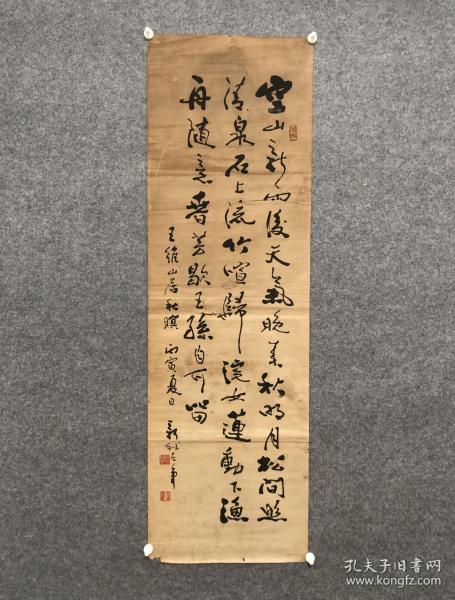 空山新雨後天氣晚来秋明月松间照
清泉石上流竹喧歸浣女蓮動下漁
舟随意春芳歇王孫自可留
王維山居秋暝 丙寅夏日
孔夫子旧书网
www.kongfz.com